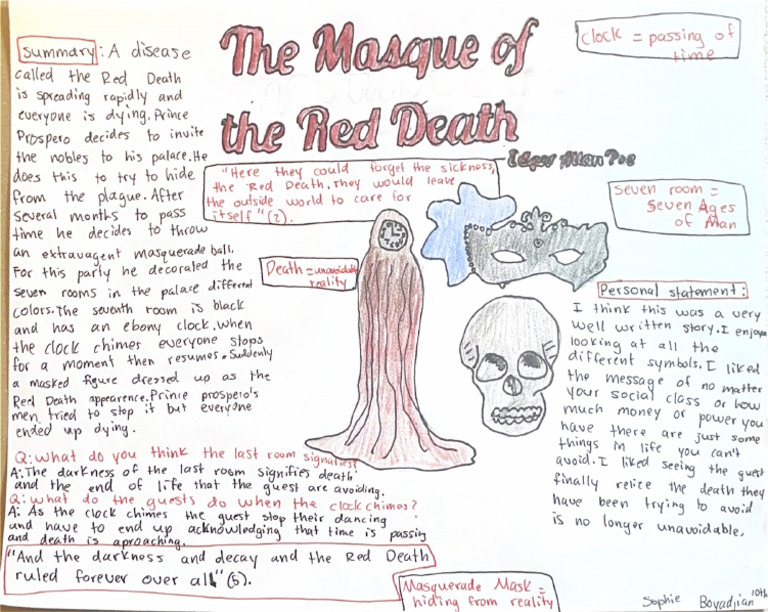 The Masque of
the Red Death
Edgar Allan Poe
clock = passing of
time
summary: A disease
called the Red Death
is spreading rapidly and
everyone is dying. Prince
Prospero decides to invite
the nobles to his palace. He
does this to try to hide
from the plague. After
several months to pass
time he decides to throw
an extravagent masquerade ball.
For this party he decorated the
seven rooms in the palace different
colors. The seventh room is black
and has an ebony clock. When
the clock chimes everyone stops
for a moment then resumes. Suddenly
a masked figure dressed up as the
Red Death appearence. Prince prospero's
men tried to stop it but everyone
ended up dying.
"Here they could forget the sickness,
the Red Death. They would leave
the outside world to care for
itself" (2).
Seven room =
Seven Ages
of Man
Death = unavoidable
reality
Personal statement:
I think this was a very
well written story. I enjoyed
looking at all the
different symbols. I liked
the message of no matter
your social class or how
much money or power you
have there are just some
things in life you can't
avoid. I liked seeing the guest
finally relize the death they
have been trying to avoid
is no longer unavoidable.
Q: what do you think the last room signafies?
A: The darkness of the last room signifies death
and the end of life that the guest are avoiding.
Q: what do the guests do when the clock chimes?
A: As the clock chimes the guest stop their dancing
and have to end up acknowledging that time is passing
and death is aproaching.
"And the darkness and decay and the Red Death
ruled forever over all" (5).
Masquerade Mask =
hiding from reality
Sophie Boyadjian 10th